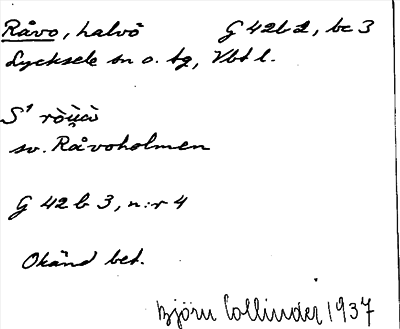 Råvo, halvö G 42b2, bc 3
Lycksele sn o. tg, Vbt l.
S¹
sv. Råvoholmen
G 42 b 3, n:r 4
Okänd bet.
Björn Collinder 1937